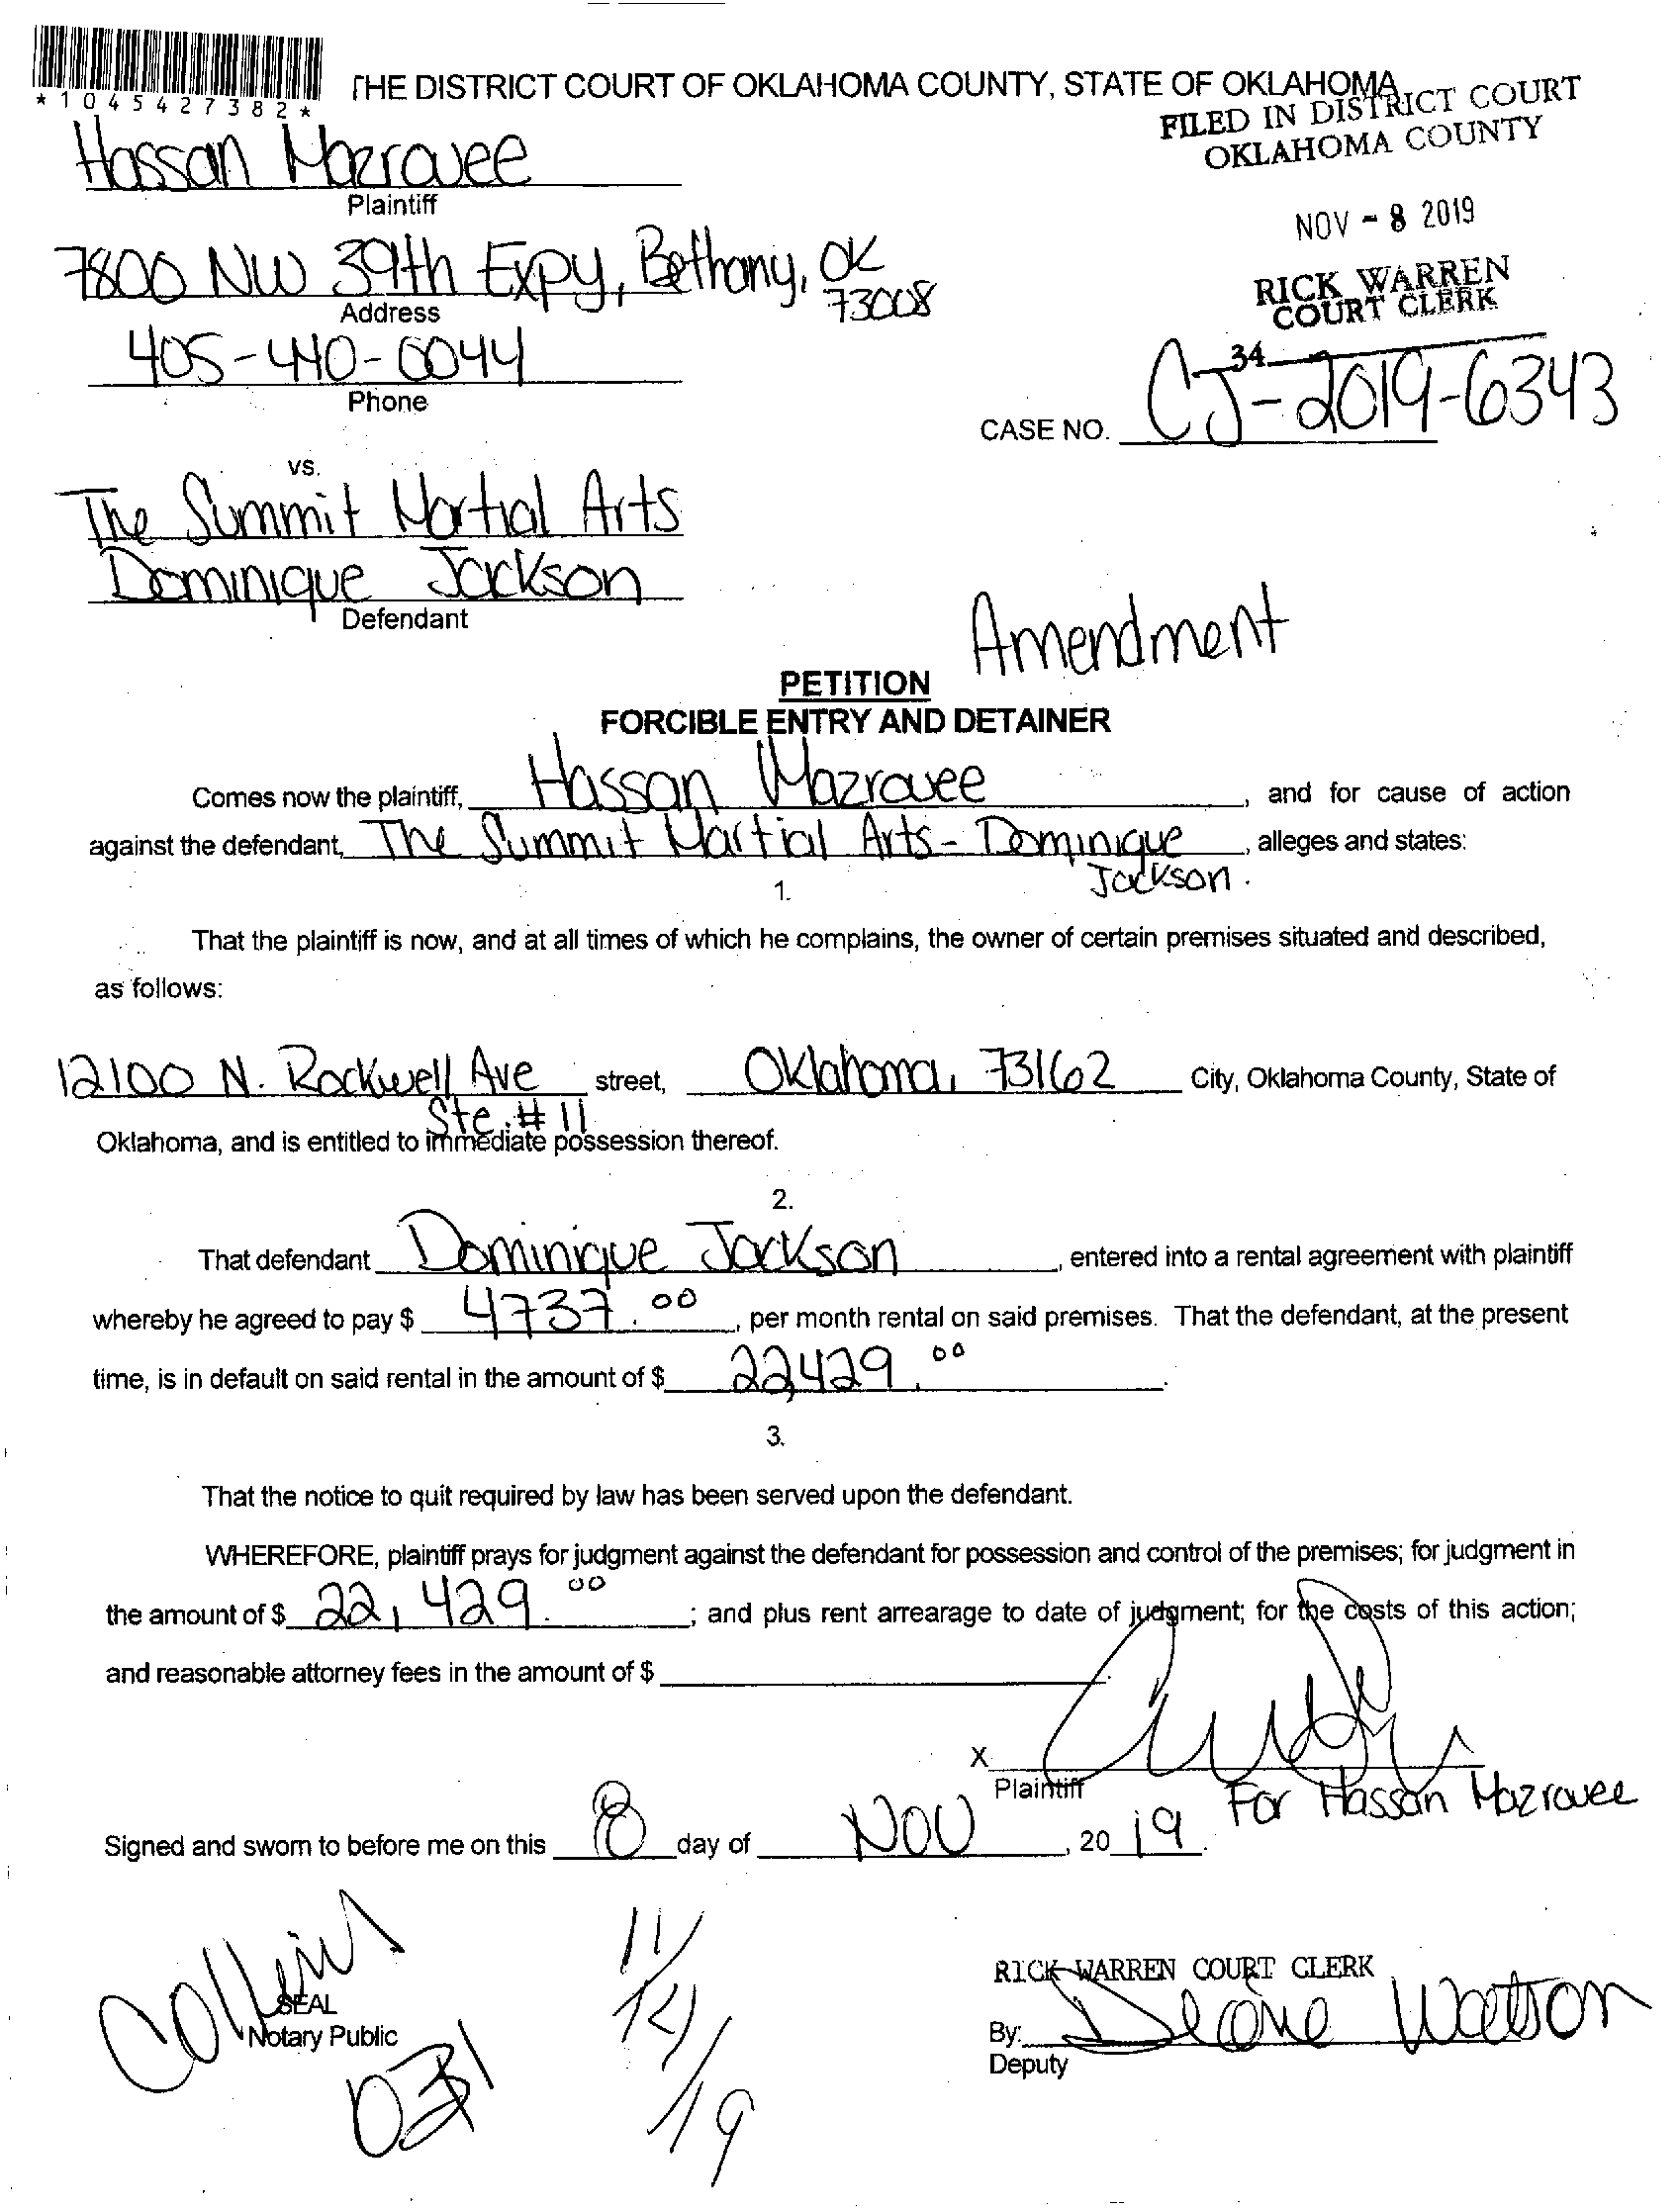 *1045427382*
THE DISTRICT COURT OF OKLAHOMA COUNTY, STATE OF OKLAHOMA
FILED IN DISTRICT COURT
OKLAHOMA COUNTY
Hassan Mazrouee
Plaintiff
NOV - 8 2019
7800 NW 39th Expy, Bethany, OK
73008
Address
RICK WARREN
COURT CLERK
405-440-0044
Phone
34
CASE NO. CJ-2019-6343
vs.
The Summit Martial Arts
Dominique Jackson
Defendant
Amendment
PETITION
FORCIBLE ENTRY AND DETAINER
Comes now the plaintiff, Hassan Mazrouee, and for cause of action
against the defendant, The Summit Martial Arts - Dominique, alleges and states:
Jackson.
1.
That the plaintiff is now, and at all times of which he complains, the owner of certain premises situated and described,
as follows:
12100 N. Rockwell Ave street, Oklahoma, 73162 City, Oklahoma County, State of
Ste. # 11
Oklahoma, and is entitled to immediate possession thereof.
2.
That defendant Dominique Jackson, entered into a rental agreement with plaintiff
whereby he agreed to pay $ 4737.00, per month rental on said premises. That the defendant, at the present
time, is in default on said rental in the amount of $ 22,429.00.
3.
That the notice to quit required by law has been served upon the defendant.
WHEREFORE, plaintiff prays for judgment against the defendant for possession and control of the premises; for judgment in
the amount of $ 22,429.00; and plus rent arrearage to date of judgment; for the costs of this action;
and reasonable attorney fees in the amount of $
X
Plaintiff
For Hassan Mazrouee
Signed and sworn to before me on this 8 day of NOV, 2019.
Collins
SEAL
Notary Public
031
11/14/19
RICK WARREN COURT CLERK
By: Deone Watson
Deputy